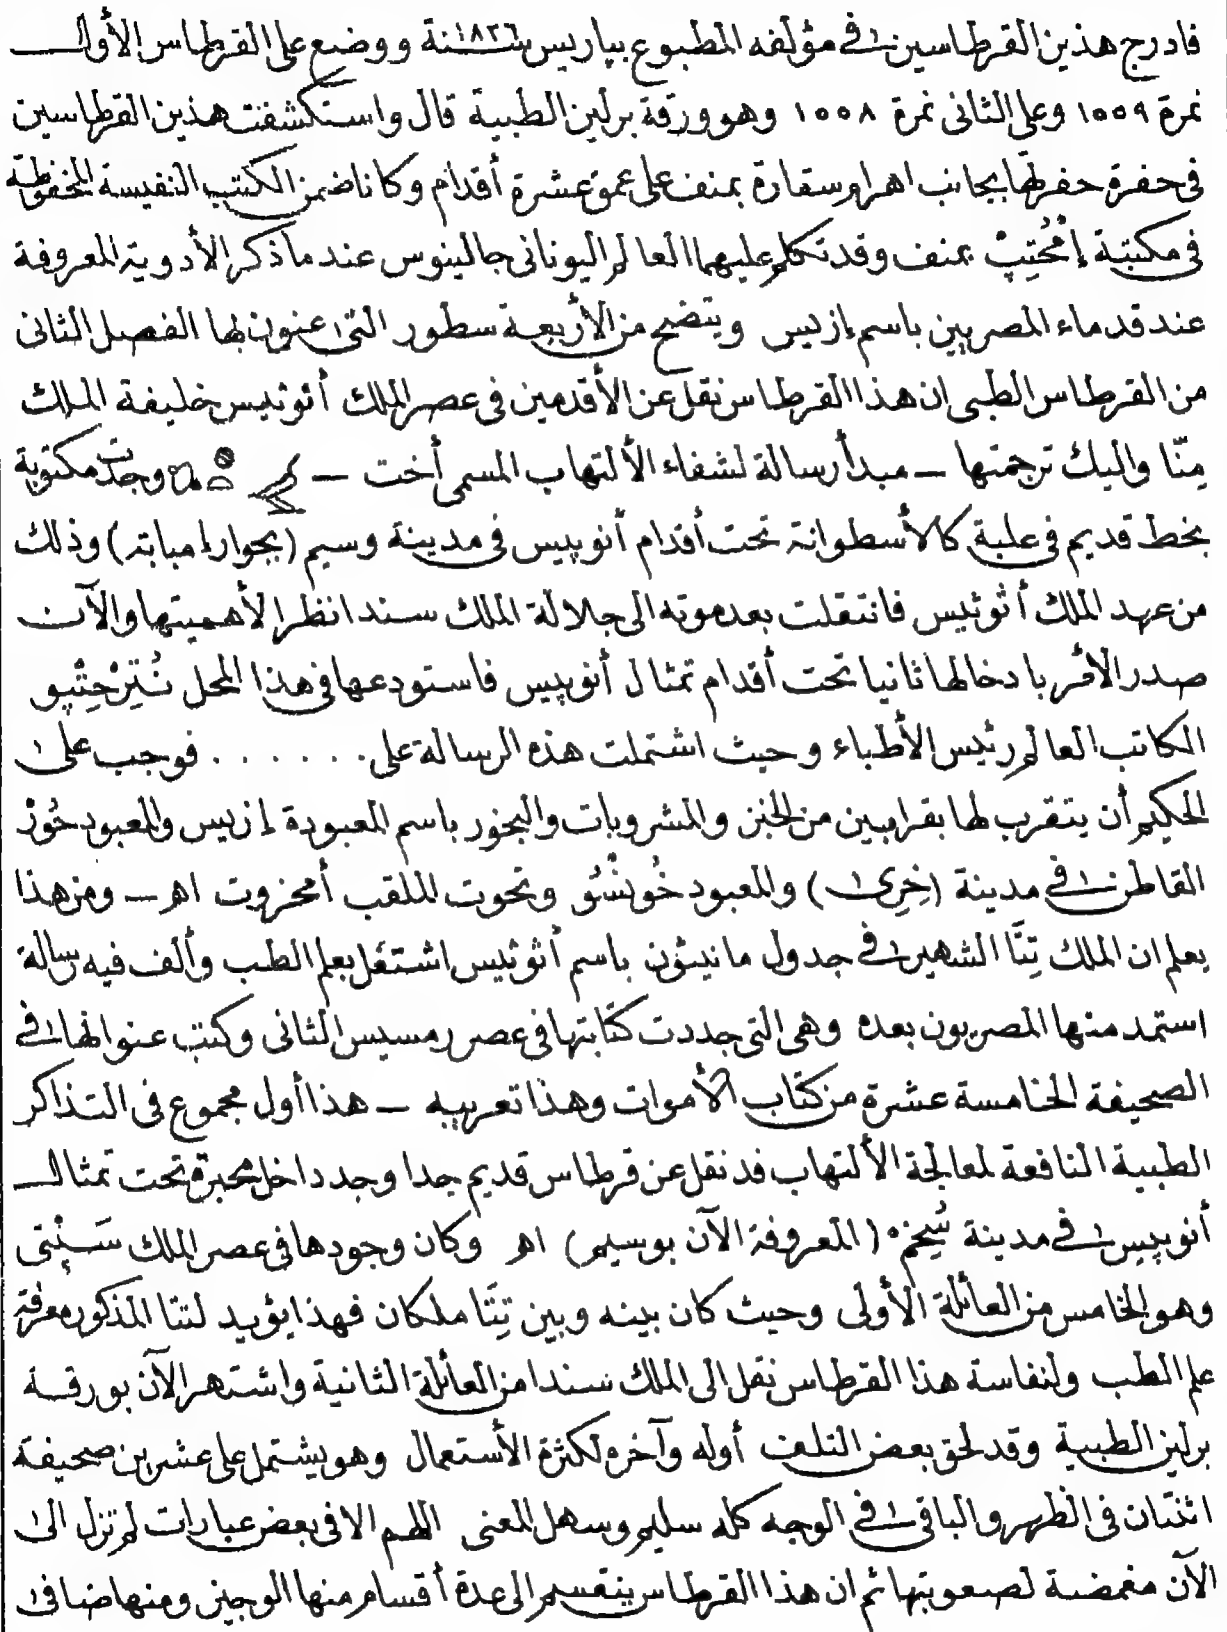 فادرج هذين القرطاسين فى مؤلفه المطبوع بباريس سنة ١٨٢٦ ووضع على القرطاس الأول
نمرة ١٥٥٩ وعلى الثانى نمرة ١٥٥٨ وهو ورقة برلين الطبية قال واستكشفت هذين القرطاسين
فى حفرة حفرتها بجانب اهرام سقارة بمنف على عمق عشرة أقدام وكانا ضمن الكتب النفيسة المحفوظة
فى مكتبة إمْحُتِبْ بمنف وقد تكلم عليهما العالم اليونانى جالينوس عند ما ذكر الأدوية المعروفة
عند قدماء المصريين باسم إزيس ويتضح من الأربعة سطور التى عنون بها الفصل الثانى
من القرطاس الطبى ان هذا القرطاس نقل عن الأقدمين فى عصر الملك أثوثيس خليفة الملك
مِنّا واليك ترجمتها — مبدأ رسالة لشفاء الألتهاب المسمى أخت — وجدت مكتوبة
بخط قديم فى علبة كالأسطوانة تحت أقدام أنوبيس فى مدينة وسيم (بجوار إمبابة) وذلك
من عهد الملك أثوثيس فانتقلت بعد موته الى جلالة الملك سندا نظرا لأهميتها والآن
صدر الأمر بادخالها ثانيا تحت أقدام تمثال أنوبيس فاستودعها فى هذا المحل نُتِرْحِتْبو
الكاتب العالم رئيس الأطباء وحيث اشتملت هذه الرسالة على . . . . . . فوجب على
الحكيم أن يتقرب لها بقرابين من الخبز والمشروبات والبخور باسم المعبودة إزيس والمعبود حُورْ
القاطن فى مدينة (خِرِى) والمعبود خُونْسُو وتحوت الملقب أمخزوت اهـ — ومن هذا
يعلم ان الملك تِتَّا الشهير فى جدول مانيثون باسم أثوثيس اشتغل بعلم الطب وألف فيه رسالة
استمد منها المصريون بعده وهى التى جددت كتابتها فى عصر رمسيس الثانى وكتب عنوانها فى
الصحيفة الخامسة عشرة من كتاب الأموات وهذا تعريبه — هذا أول مجموع فى التذاكر
الطبية النافعة لمعالجة الألتهاب قد نقل عن قرطاس قديم جدا وجد داخل محبرة تحت تمثال
أنوبيس فى مدينة سُيخم (المعروفة الآن بوسيم) اهـ وكان وجودها فى عصر الملك سَنْبِتى
وهو الخامس من العائلة الأولى وحيث كان بينه وبين تِتَّا ملكان فهذا يؤيد لتتا المذكور معرفة
علم الطب ولنفاسة هذا القرطاس نقل الى الملك سندا من العائلة الثانية واشتهر الآن بورقة
برلين الطبية وقد لحق بعض التلف أوله وآخره لكثرة الأستعمال وهو يشتمل على عشرين صحيفة
اثنتان فى الظهر والباقى فى الوجه كله سليم وسهل المعنى اللهم الا فى بعض عبارات لم تزل الى
الآن مغمضة لصعوبتها ثم ان هذا القرطاس ينقسم الى عدة أقسام منها الوجيز ومنها ضافى